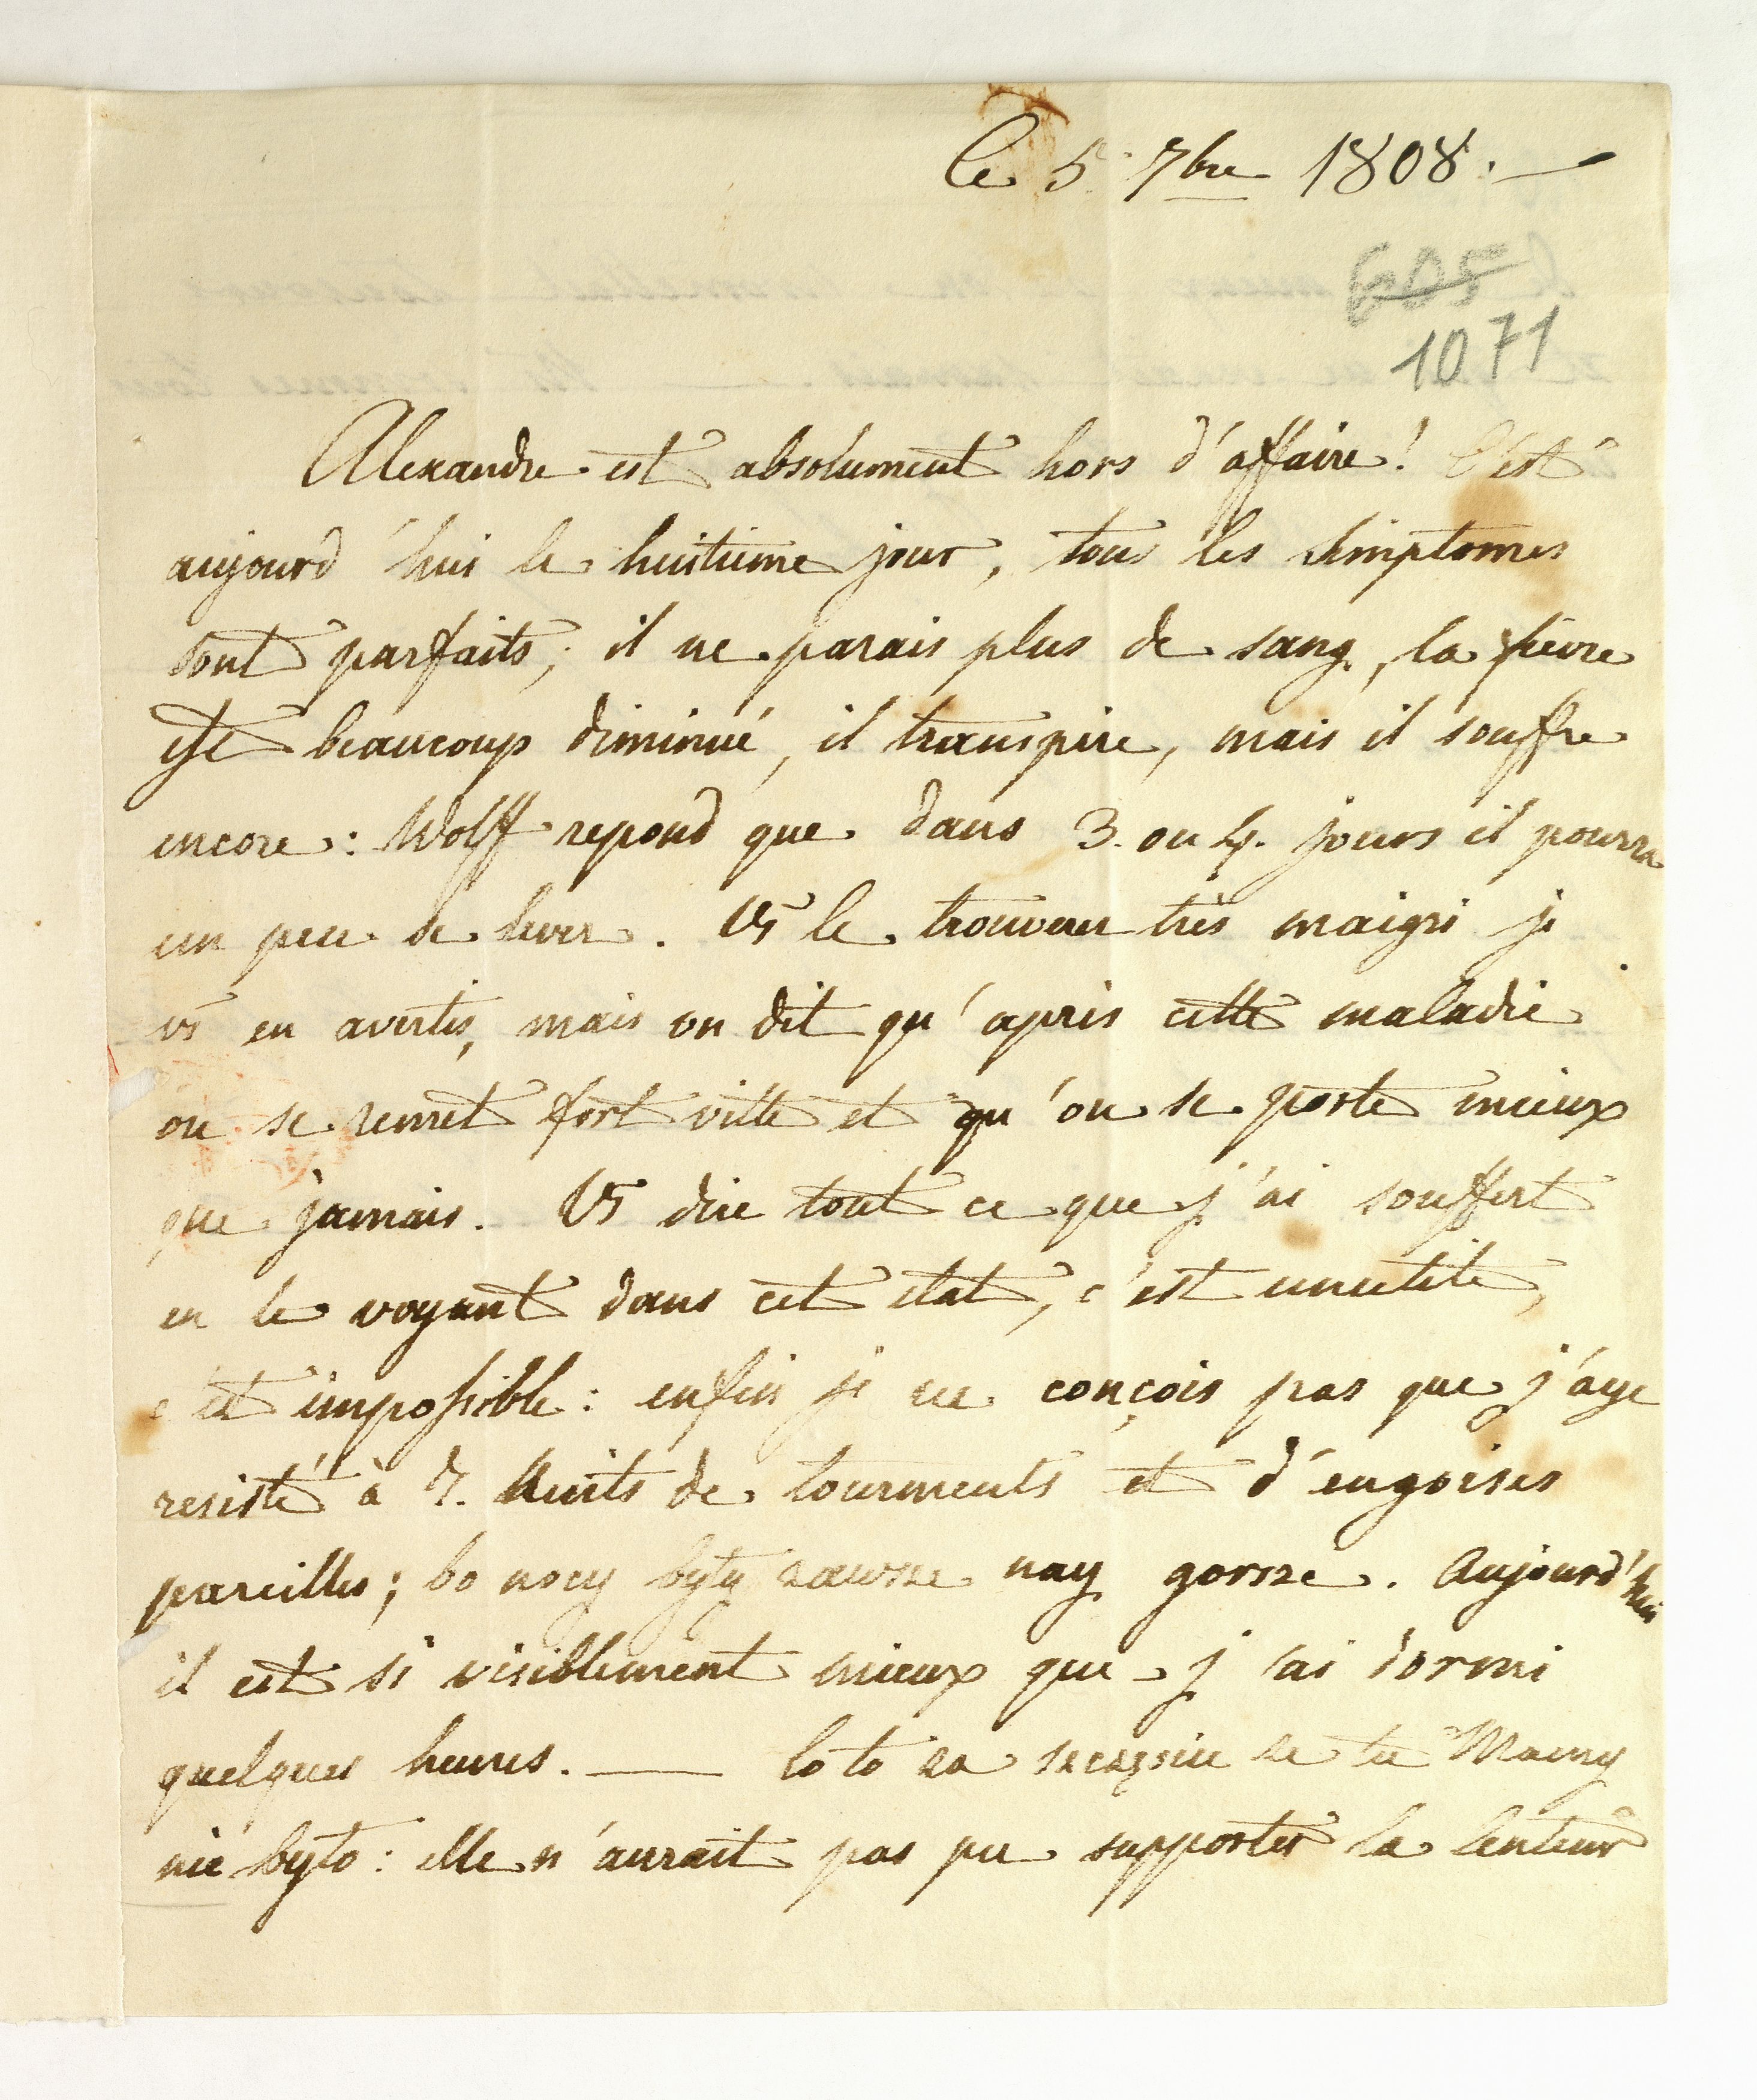 le 5. 7bre 1808.
605
1071
Alexandre est absolument hors d'affaire! C'est
aujourd'hui le huitieme jour, tous les simptomes
sont parfaits; il ne parais plus de sang, la fièvre
est beaucoup diminué, il transpire, mais il souffre
encore: Wolff repond que dans 3. ou 4. jours il pourra
un peu se lever. Vs le trouverez très maigri je
vs en avertis, mais on dit qu'après cette maladie
on se remet fort vitte et qu'on se porte mieux
que jamais. Vs dire tout ce que j'ai souffert
en le voyant dans cet etat, c'est inutile,
c'est impossible: enfin je ne conçois pas que j'aye
resisté à 7. Nuits de tourments et d'engoises
pareilles; bo nocy byty zawsze nay gorsze. Aujourd'hui
il est si visiblement mieux que j'ai dormi
quelques heures. — Co to za szczęscie ze tu Mamy
nie byto: elle n'aurait pas pu supporter la lenteur